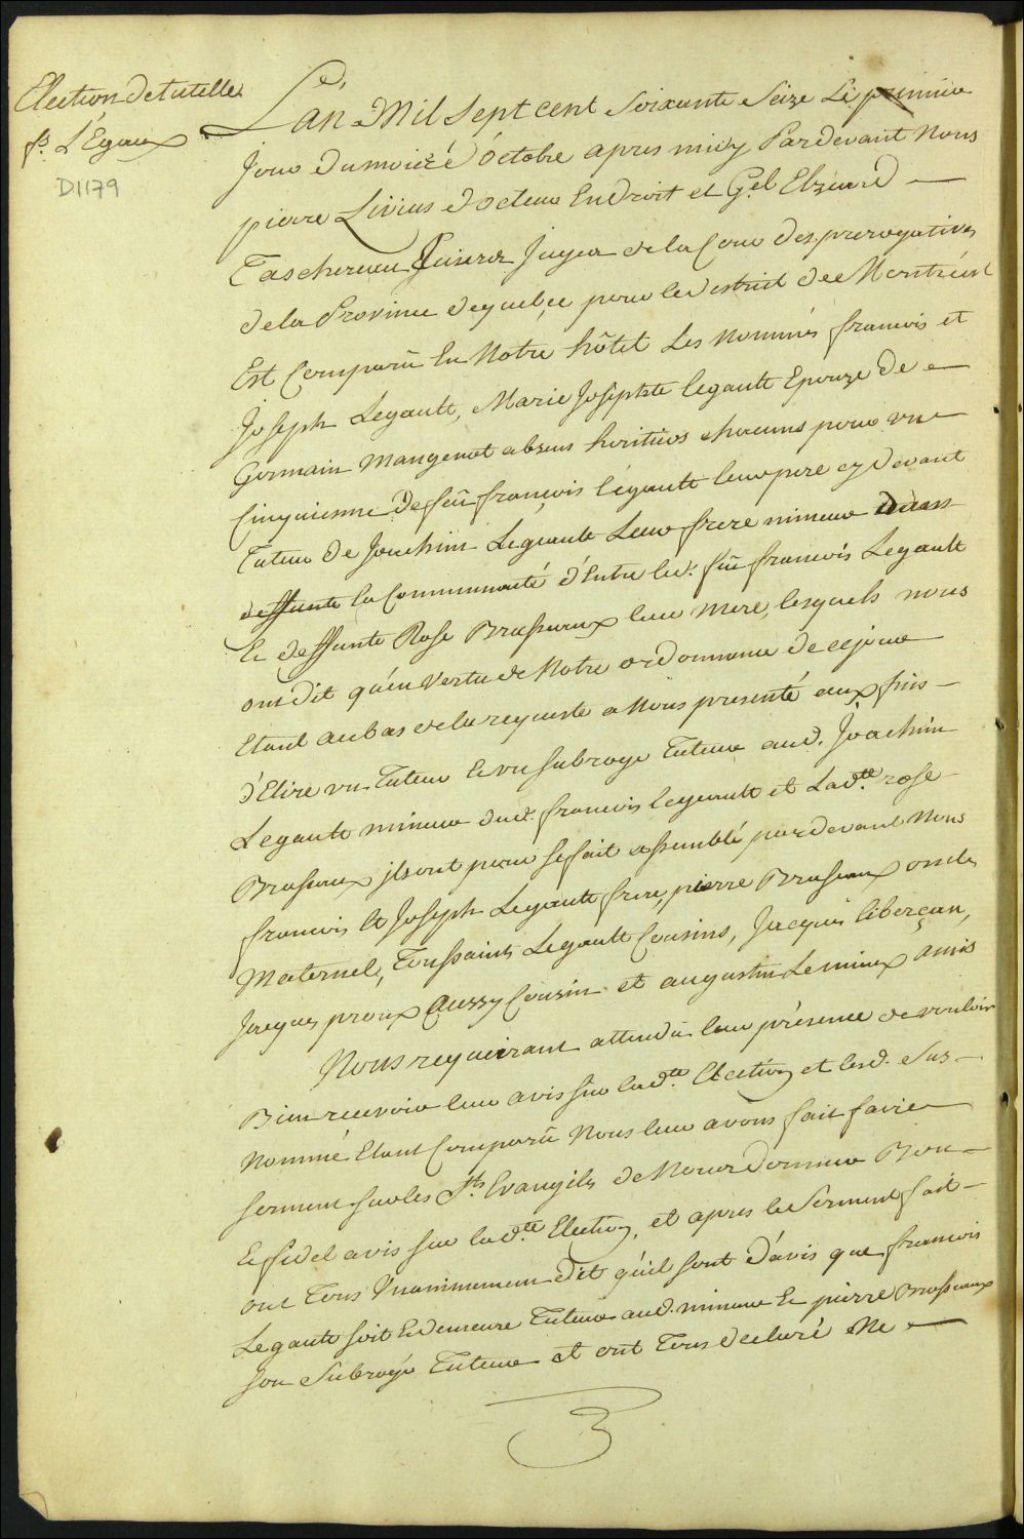 Election de tutelle
fs. L'Egaux
D1179
L'an Mil Sept cent Soixante Seize Le premier
Jour du mois d'octobre apres midy Pardevant Nous
pierre Livius docteur En droit et G.el Elzeard
Taschereau Juges de la Cour des prerogatives
de la Province de quebec pour le district de Montréal
Est Comparû En Notre hôtel Les Nommés francois et
Joseph Legault, Marie Josephte legault Epouze de
Germain Mangenot absens heritiers chacuns pour un
Cinquiesme De feû françois légault leur pere cy devant
Tuteur de Joachim Legault Leur frere mineur
deffunte la Communauté d'Entre led. feû francois Legault
Et deffunte Rose Brasseaux leur mere, lesquels nous
ont dit qu'en Vertu de Notre ordonnance de ce jour
Etant au bas de la requeste a Nous presenté aux fins
d'Elire un Tuteur et un subrogé Tuteur aud. Joachim
Legault mineur dud. francois legault et Lad.te rose
Brasseaux ils ont pour se fait assemblé pardevant Nous
francois et Joseph Legault frere, pierre Brasseaux oncle
Maternel, Toussaint Legault Cousins, Jacques liberçan,
Jacques proux Aussy Cousin et augustin Lemieux amis
Nous requeirant attendû leur présence de vouloir
Bien recevoir leur avis sur lad.te Election et lesd. Sus
nommé Etant Comparû Nous leur avons fait faire
serment sur les Sts Evangiles de Nous donner Bon
Et fidel avis sur lad.te Election, et apres le Serment fait
ont Tous Unanimement dit qu'il sont d'avis que francois
Legault soit Et demeure Tuteur aud. mineur Et pierre Brasseaux
son Subrogé Tuteur et ont Tous declaré Ne